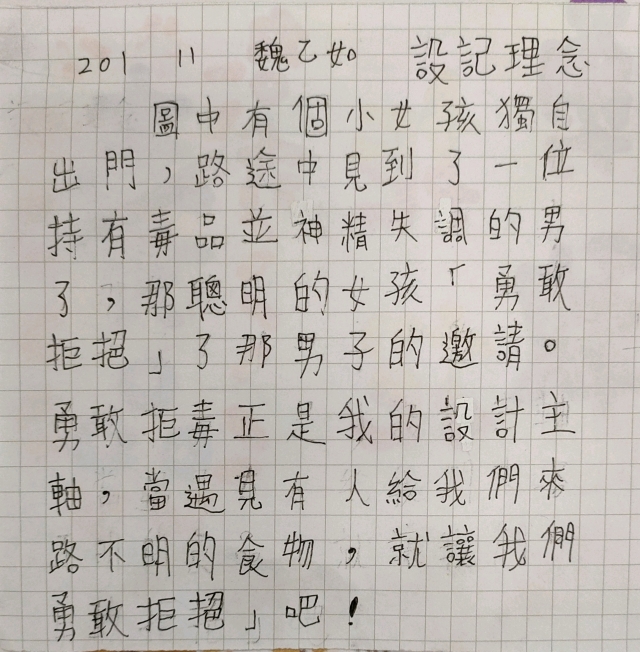 201 11 魏乙如 設記理念
圖中有個小女孩獨自
出門，路途中見到了一位
持有毒品並神精失調的男
了，那聰明的女孩「勇敢
拒挹」了那男子的邀請。
勇敢拒毒正是我的設計主
軸，當遇見有人給我們來
路不明的食物，就讓我們
勇敢拒挹」吧！